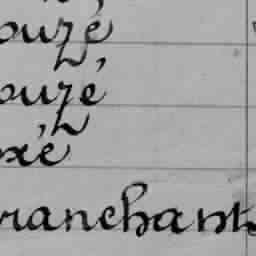 ouzé
ouzé
xé
ranchant